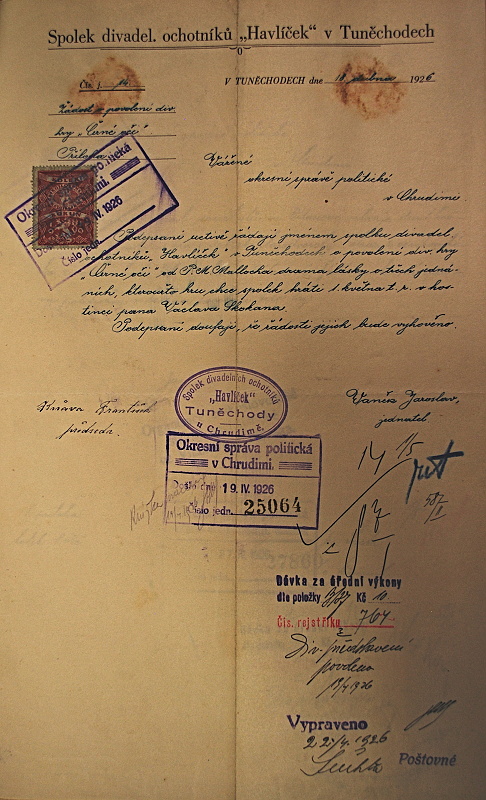 Spolek divadel. ochotníků „Havlíček“ v Tuněchodech
Čís. j. 14.
V TUNĚCHODECH dne 18. dubna 1926
Žádost o povolení div.
hry „Černé oči“
Příloha
Vážené
okresní správě politické
v Chrudimi
Podepsaní uctivě žádají jménem spolku divadel.
ochotníků „Havlíček“ v Tuněchodech o povolení div. hry
„Černé oči“ od P. M. Mallocha drama lásky o třech jedná-
ních, kteroužto hru chce spolek hráti 1. května t. r. v hos-
tinci pana Václava Skokana.
Podepsaní doufají, že žádosti jejich bude vyhověno.
Okresní politická
v Chrudimi.
IV. 1926
Číslo jedn.
František
předseda.
Spolek divadelních ochotníků
„Havlíček“
Tuněchody
u Chrudimě.
Vaněk Jaroslav,
jednatel
Okresní správa politická
v Chrudimi.
Došlo dne 19. IV. 1926
Číslo jedn. 25064
14 1/5
Dávka za úřední výkony
dle položky Kč 10
Čís. rejstříku 764
Div. představení
povoleno
19/4 1926
Vypraveno
22./4. 1926
Poštovné